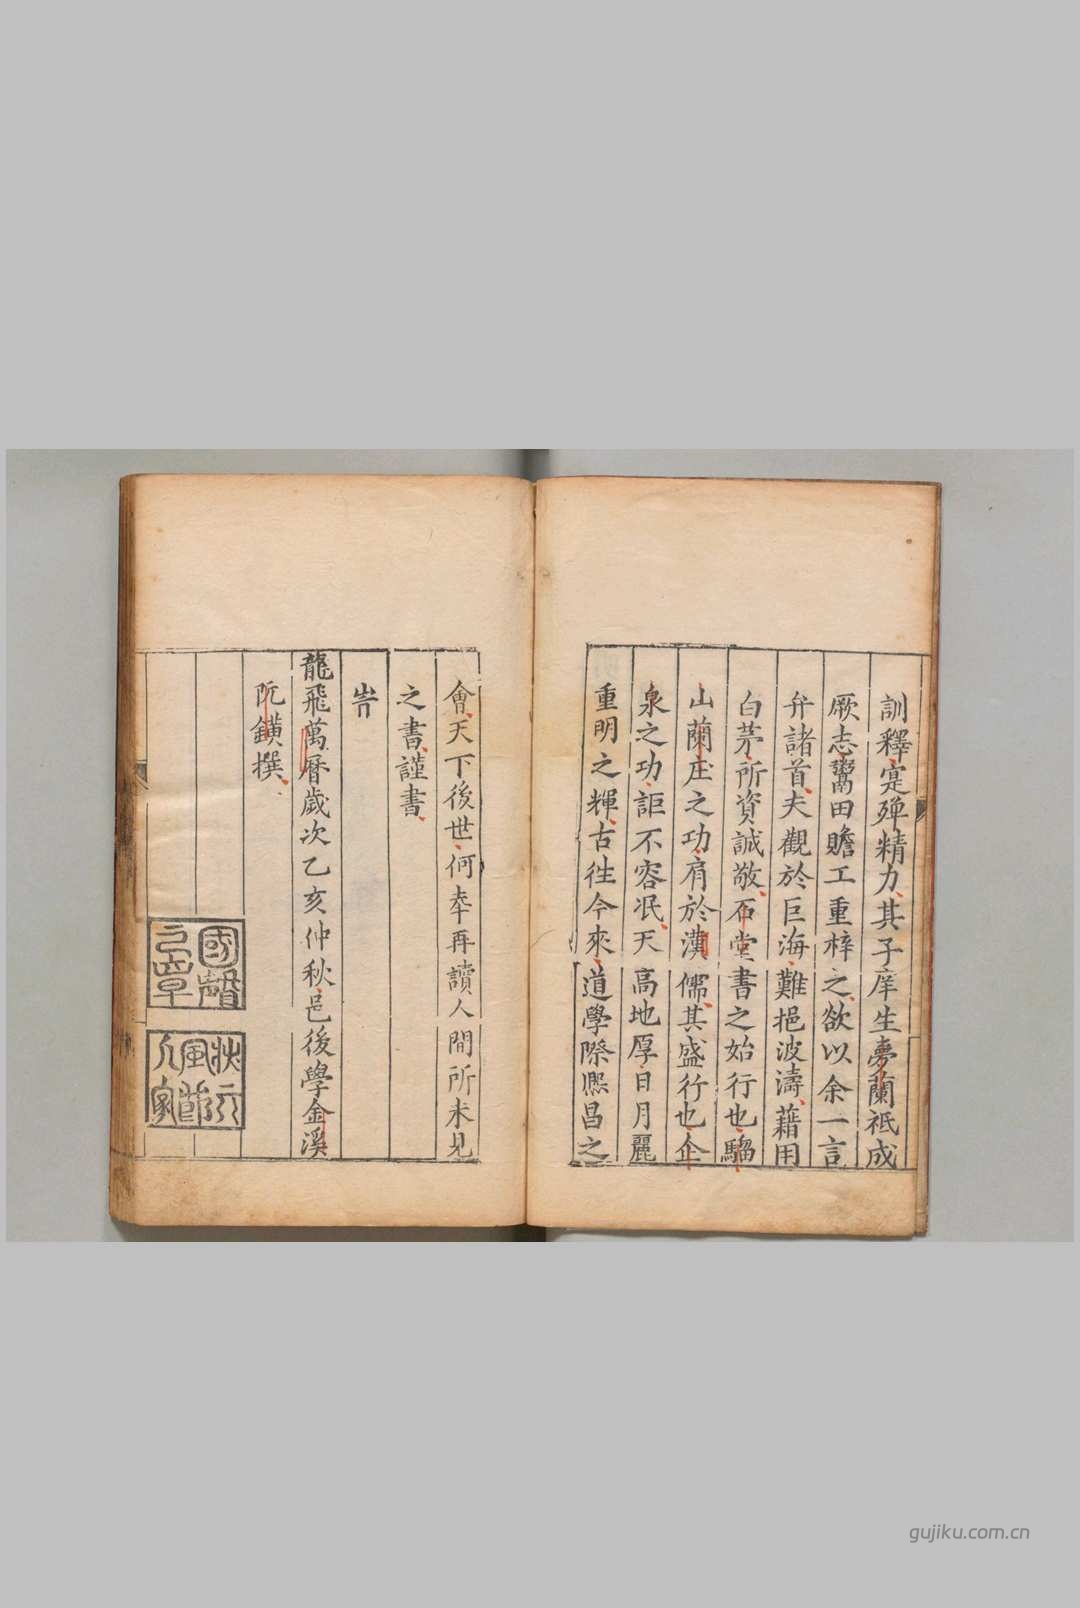 訓釋寔殫精力其子庠生夢蘭祗成
厥志鬻田贍工重梓之欲以余一言
弁諸首夫觀於巨海難挹波濤藉用
白茅所資誠敬石堂書之始行也騮
山蘭庄之功肩於漢儒其盛行也企
泉之功詎不容泯天高地厚日月麗
重明之輝古徃今來道學際熈昌之
會天下後世何幸再讀人間所未見
之書謹書
旹
龍飛萬曆歲次乙亥仲秋邑後學金溪
阮鐄撰
國聲之章
風節人家
gujiku.com.cn